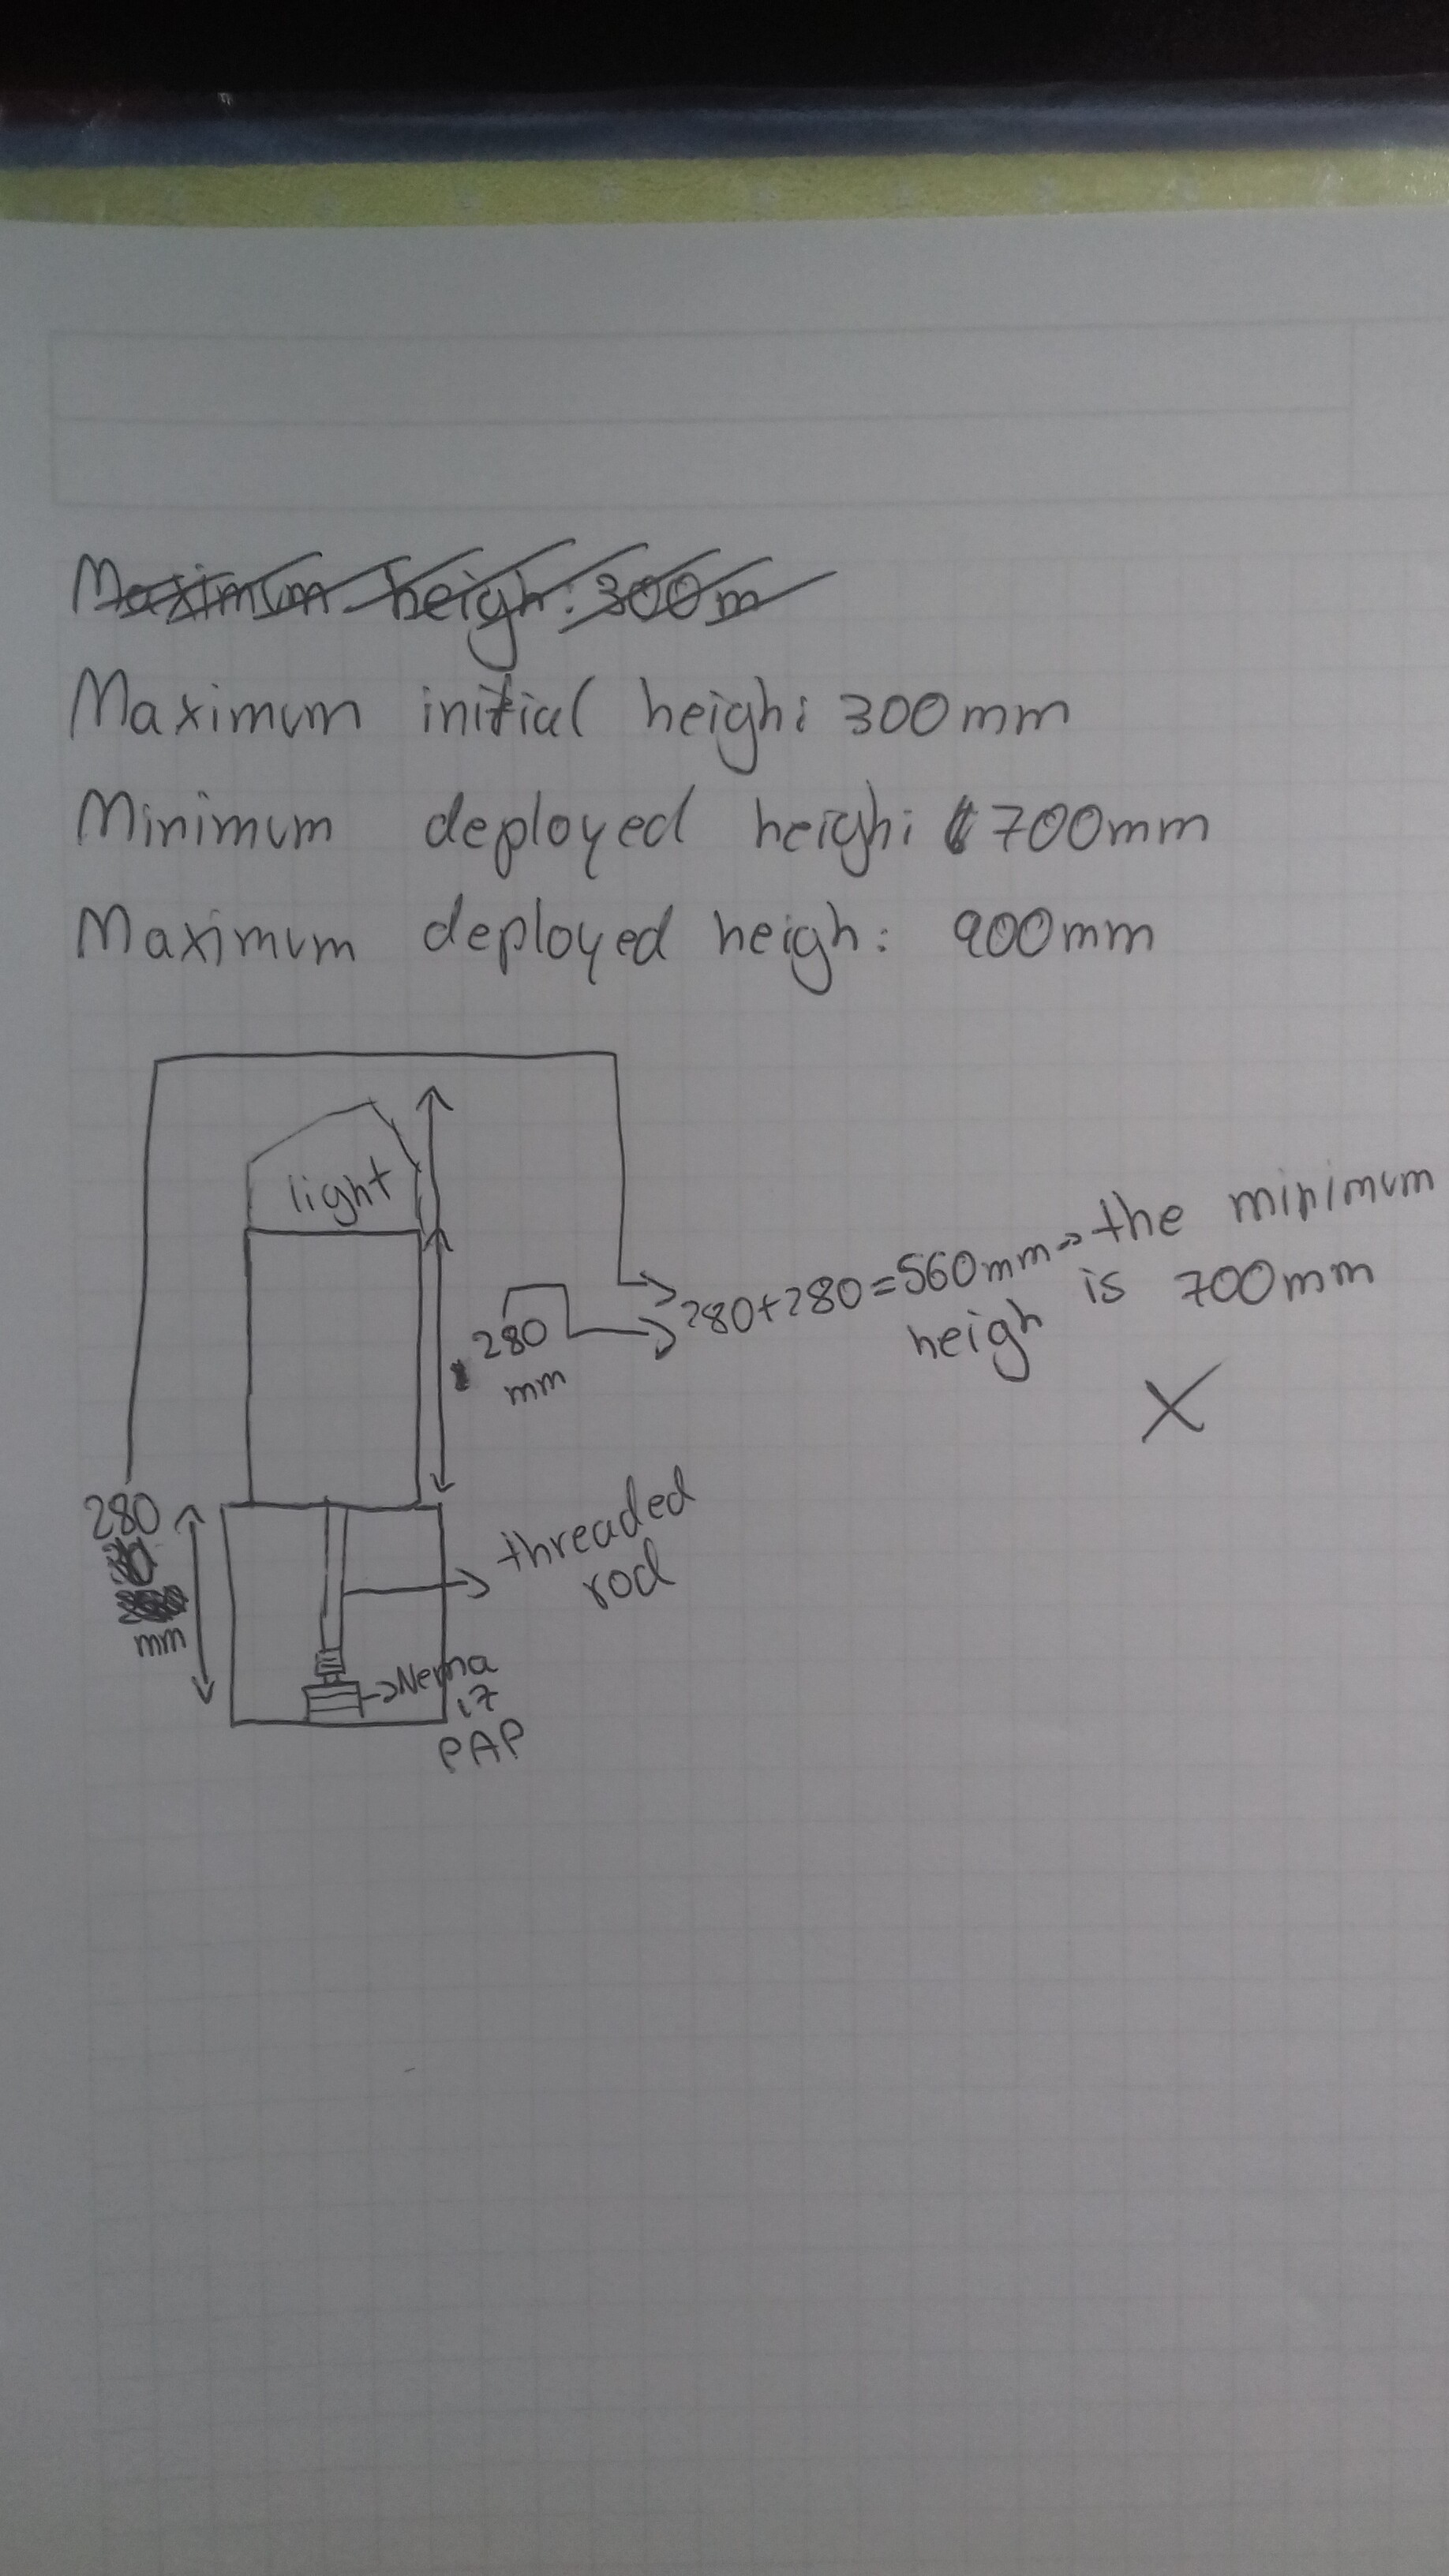 Maximum heigh: 300m
Maximum initial heigh: 300mm
Minimum deployed heigh: 700mm
Maximum deployed heigh: 900mm
light
280
mm
280+280=560mm→the minimum
heigh is 700mm
X
280
mm
threaded
rod
→Nema
17
PAP